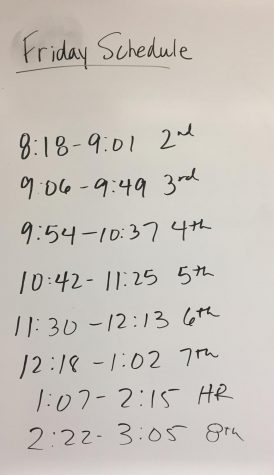 Friday Schedule
8:18-9:01 2nd
9:06-9:49 3rd
9:54-10:37 4th
10:42-11:25 5th
11:30-12:13 6th
12:18-1:02 7th
1:07-2:15 HR
2:22-3:05 8th